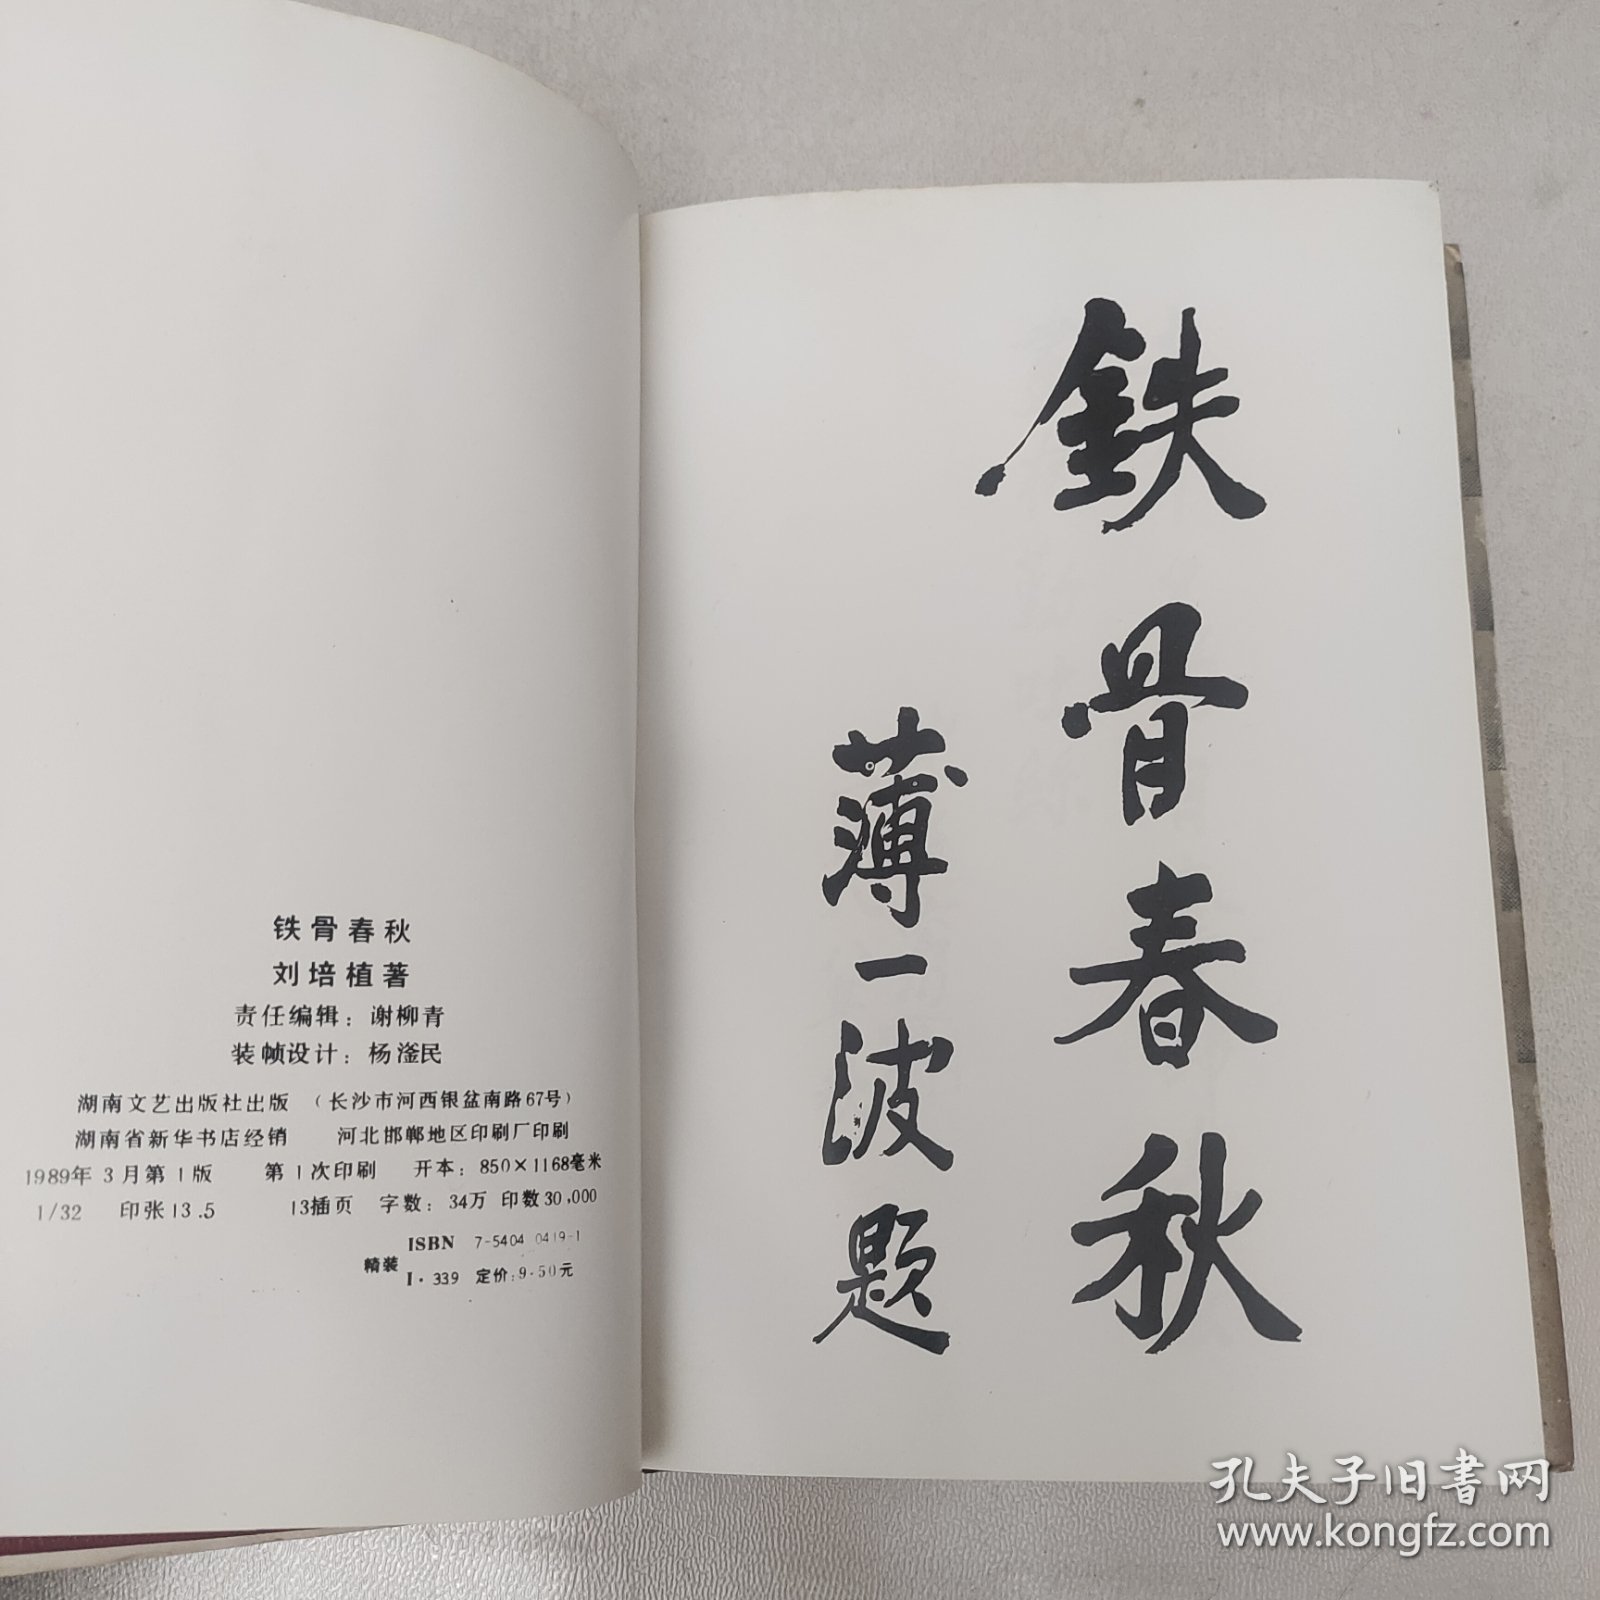 铁骨春秋
刘培植著
责任编辑：谢柳青
装帧设计：杨滏民
湖南文艺出版社出版 （长沙市河西银盆南路67号）
湖南省新华书店经销 河北邯郸地区印刷厂印刷
1989年3月第1版 第1次印刷 开本：850×1168毫米
1/32 印张13.5 13插页 字数：34万 印数30,000
精装
ISBN 7-5404 0419-1
I·339 定价：9.50元
鉄骨春秋
薄一波题
孔夫子旧书网
www.kongfz.com